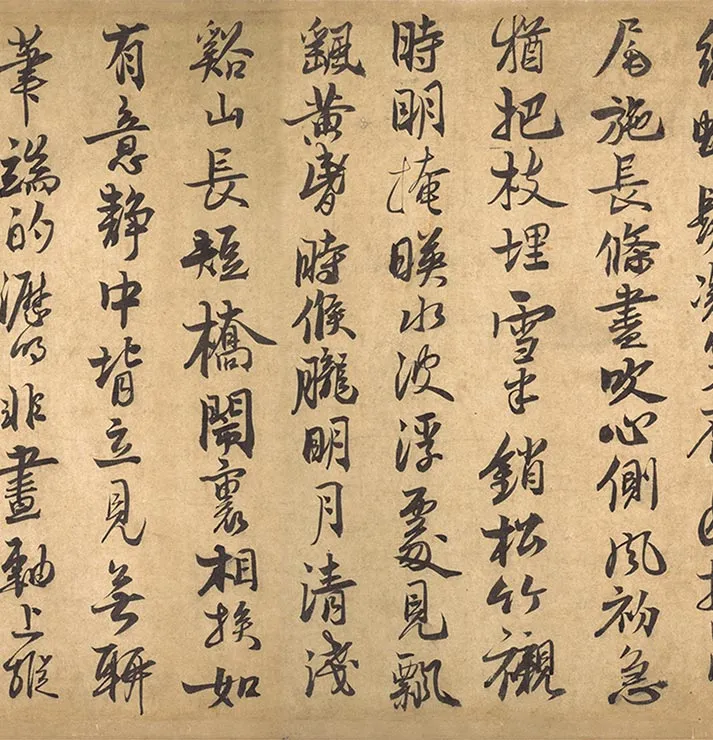 鬚
施長條盡吹心側風初急
猶把枝埋雪半銷松竹襯
時明掩暎水波浮處見飄
颻黃昏時候朧明月清淺
谿山長短橋鬧裏相挨如
有意静中背立見無聊
筆端的瀝明非畫軸上縱